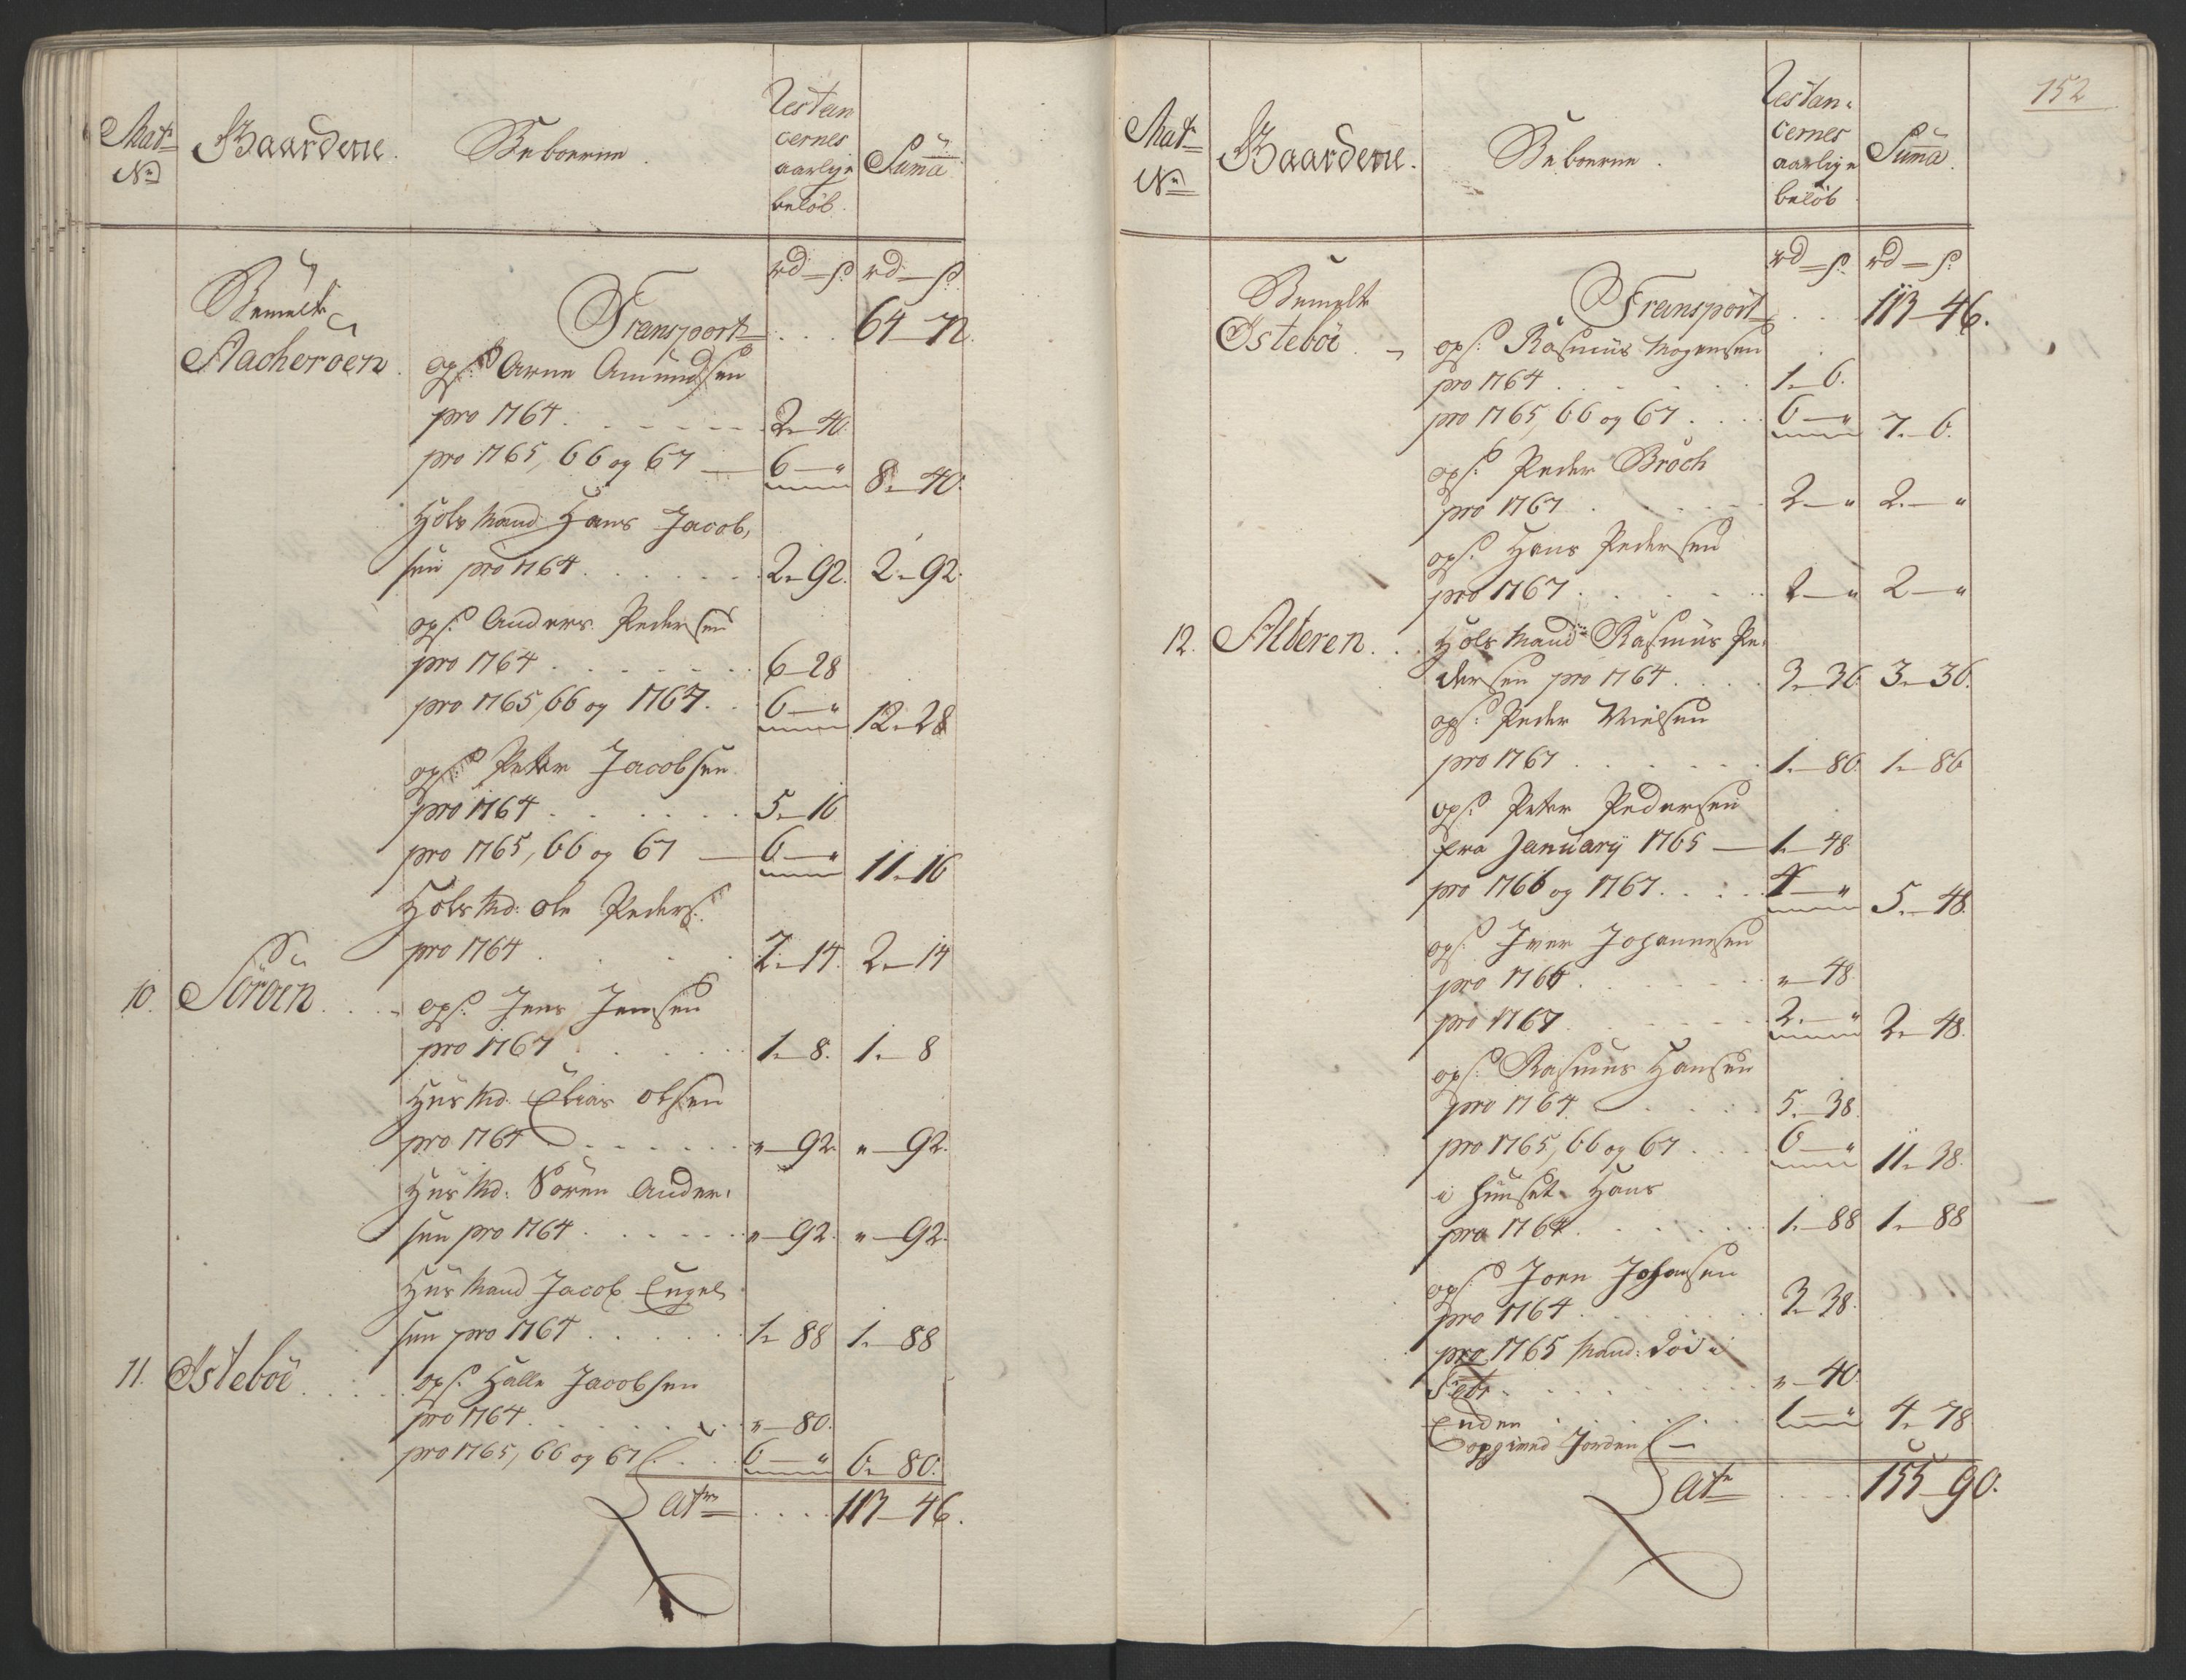 Mat
No
Gaardene.
Beboerne.
Restan
cernes
aarlige
beløb.
Suma
rd — s. rd — s.
Bemelte
Aacheröen.
Transport . . . 64 – 72.
ops. Arne Amundsen
pro 1764 . . . . . 2 – 40.
pro 1765, 66 og 67 — 6 – " 8 – 40.
Hols Mand Hans Jacob,
sen pro 1764 . . . . . 2 – 92. 2 – 92.
ops. Anders Pedersen
pro 1764 . . . . . 6 – 28
pro 1765, 66 og 1767 . . 6 – " 12 – 28
ops. Peter Jacobsen
pro 1764 . . . . . 5 – 16
pro 1765, 66 og 67 — 6 – " 11 – 16
Hols Md: Ole Peders.
pro 1764 . . . 2 – 14. 2 – 14
10. Söröen . . . ops. Jens Jensen
pro 1767 . . . . 1 – 8. 1 – 8
Huus Md. Elias Olsen
pro 1764 . . . . . " – 92. " – 92.
Huus Md: Sören Ander,
sen pro 1764 . . . . . " – 92. " – 92.
Huus Mand Jacob Engel,
sen pro 1764 . . . . . 1 – 88 1 – 88
11. Osteböe . . . ops. Halle Jacobsen
pro 1764 . . . . . " – 80.
pro 1765, 66 og 67 . . . 6 – " 6 – 80.
Latr . . . . 113 – 46.
152
Mat
No
Gaardene.
Beboerne.
Restan,
cernes
aarlige
beløb
Suma.
rd — s. rd — s.
Bemelte
Ostebóe
Transport . . . 113 – 46.
ops. Rasmus Mogensen
pro 1764 . . . . . 1 – 6.
pro 1765, 66 og 67 . . . 6 – " 7 – 6.
ops. Peder Broch
pro 1767 . . . . . 2 – " 2 – "
ops. Hans Pedersen
pro 1767 . . . . . 2 – " 2 – "
12. Alteren . . . Hols Mand Rasmus Pe,
dersen pro 1764 . . . . 3 – 36. 3 – 36.
ops. Peder Nielsen
pro 1767 . . . . . 1 – 86. 1 – 86
ops. Peter Pedersen
fra January 1765 — 1 – 48
pro 1766 og 1767 . . . . 4 – " 5 – 48.
ops. Iver Johannesen
pro 1766 . . . . . " – 48.
pro 1767 . . . . . 2 – " 2 – 48.
ops. Rasmus Hansen
pro 1764 . . . . 5 – 38.
pro 1765, 66 og 67 . . . 6 – " 11 – 38.
i Huuset Hans
pro 1764 . . . . . 1 – 88 1 – 88
ops. Joen Johansen
pro 1764 . . . . . 3 – 38.
pro 1765 Mand: död i
. . . . . " – 40.
Enden . . . . . 1 – " 4 – 78
Jorden
Latr . . . . 155 – 90.